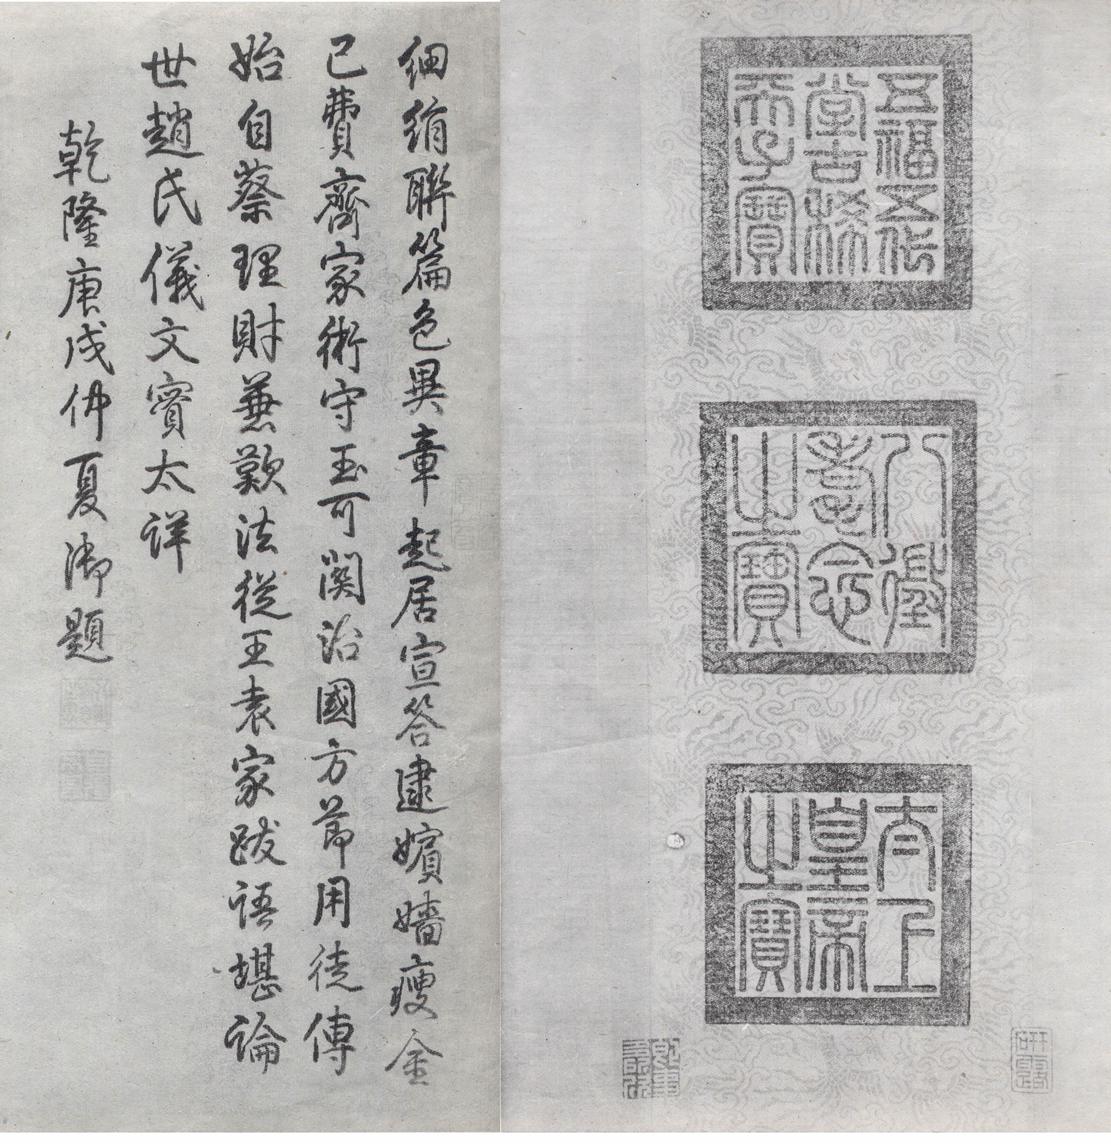 五福五代
堂古稀
天子寶
八徵
耄念
之寶
太上
皇帝
之寶
研露
細絹聯篇色異章起居宣答逮嬪嬙瘦金
已費齊家術守玉可關治國方節用徒傳
始自蔡理財兼歎法從王袁家跋語堪論
世趙氏儀文實太詳
乾隆庚戌仲夏御題